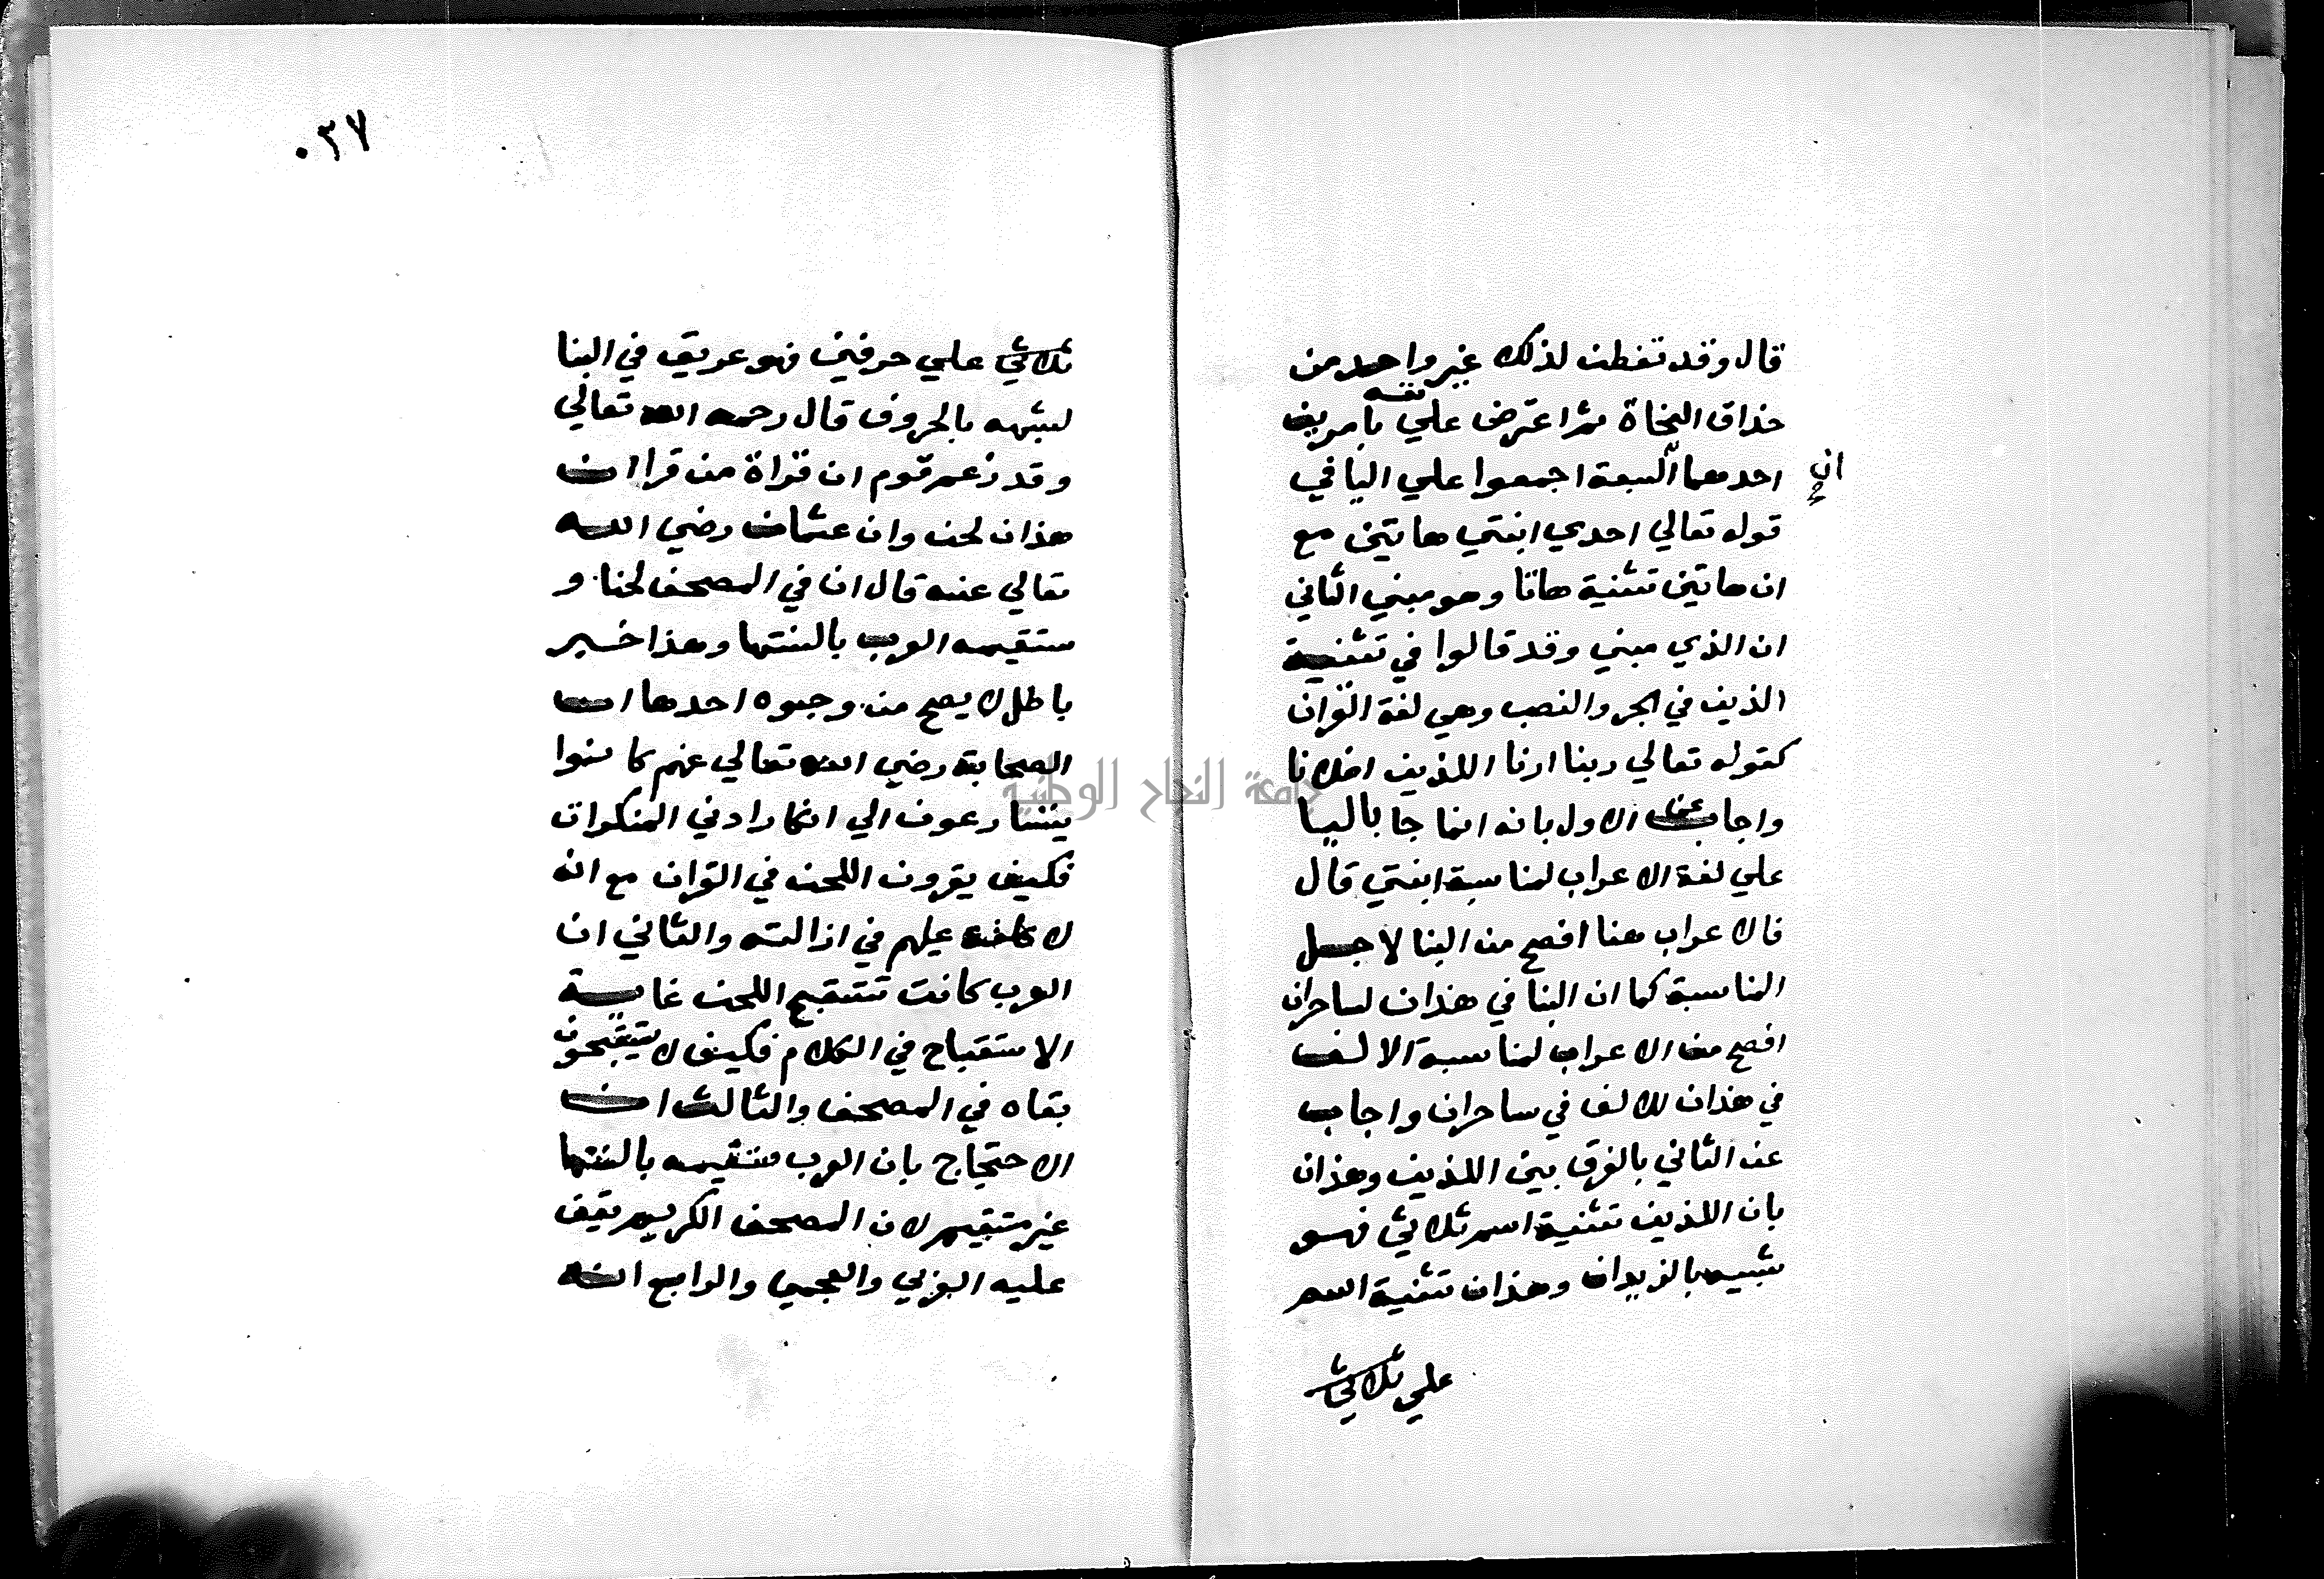 قال وقد تفطن لذلك غير واحد من
حذاق النحاة ثم اعترض علي نفسه بامرين
احدهما ان السبعة اجمعوا علي اليا في
قوله تعالي احدي ابنتي هاتين مع
ان هاتين تثنية هاتا وهو مبني الثاني
ان الذي مبني وقد قالوا في تثنية
الذين في الجر والنصب وهي لغة القران
كقوله تعالي ربنا ارنا اللذين اضلانا
واجاب عن الاول بانه انما جا باليا
علي لغة الاعراب لمناسبة ابنتي قال
فالاعراب هنا افصح من البنا لاجل
المناسبة كما ان البنا في هذان لساحران
افصح من الاعراب لمناسبة الالف
في هذان للالف في ساحران واجاب
عن الثاني بالفرق بين اللذين وهذان
بان اللذين تثنية اسم ثلاثي فهو
شبيه بالزيدان وهذان تثنية اسم
علي ثلاثي
٠٣٧
ثلاثي علي حرفين فهو عريق في البنا
لشبهه بالحروف قال رحمه الله تعالي
وقد زعم قوم ان قراة من قرا ان
هذان لحن وان عثمان رضي الله
تعالي عنه قال ان في المصحف لحنا و
ستقيمه العرب بالسنتها وهذا خبر
باطل لا يصح من وجوه احدها ان
الصحابة رضي الله تعالي عنهم كانوا
يتسارعون الي انكار ادني المنكرات
فكيف يقرون اللحن في القران مع انه
لا كلفة عليهم في ازالته والثاني ان
العرب كانت تستقبح اللحن غاية
الاستقباح في الكلام فكيف لا يستقبحون
بقاه في المصحف والثالث ان
الاحتجاج بان العرب ستقيمه بالسنتها
غير مستقيم لان المصحف الكريم يقف
عليه العربي والعجمي والرابع انه
جامعة النجاح الوطنية